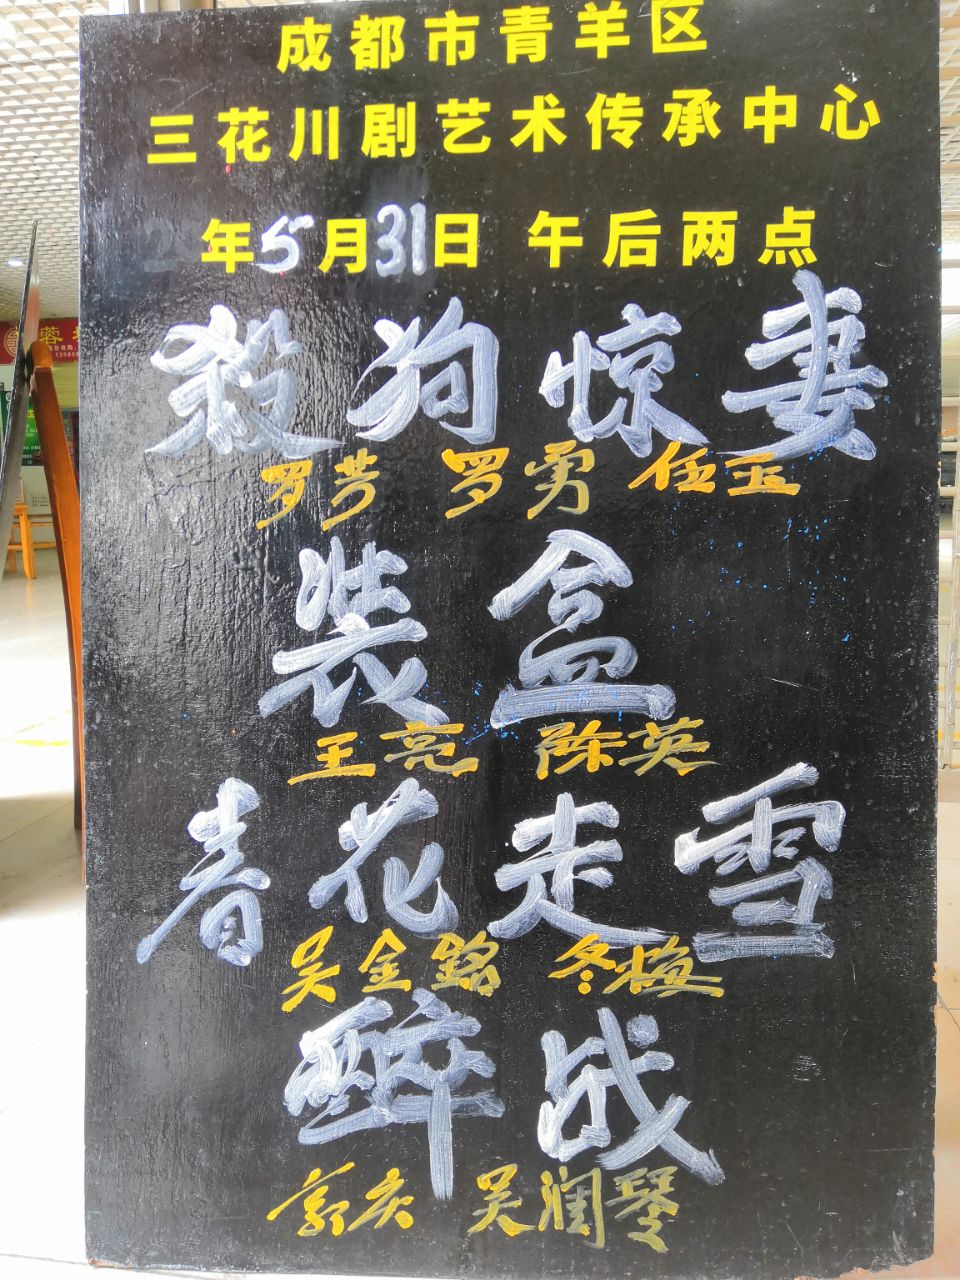 成都市青羊区
三花川剧艺术传承中心
2 年5月31日 午后两点
殺狗惊妻
罗芳 罗勇 任玉
装盒
王亮 陈英
春花走雪
吴金錦 冬梅
醉战
郭庆 吴润琴
蓉